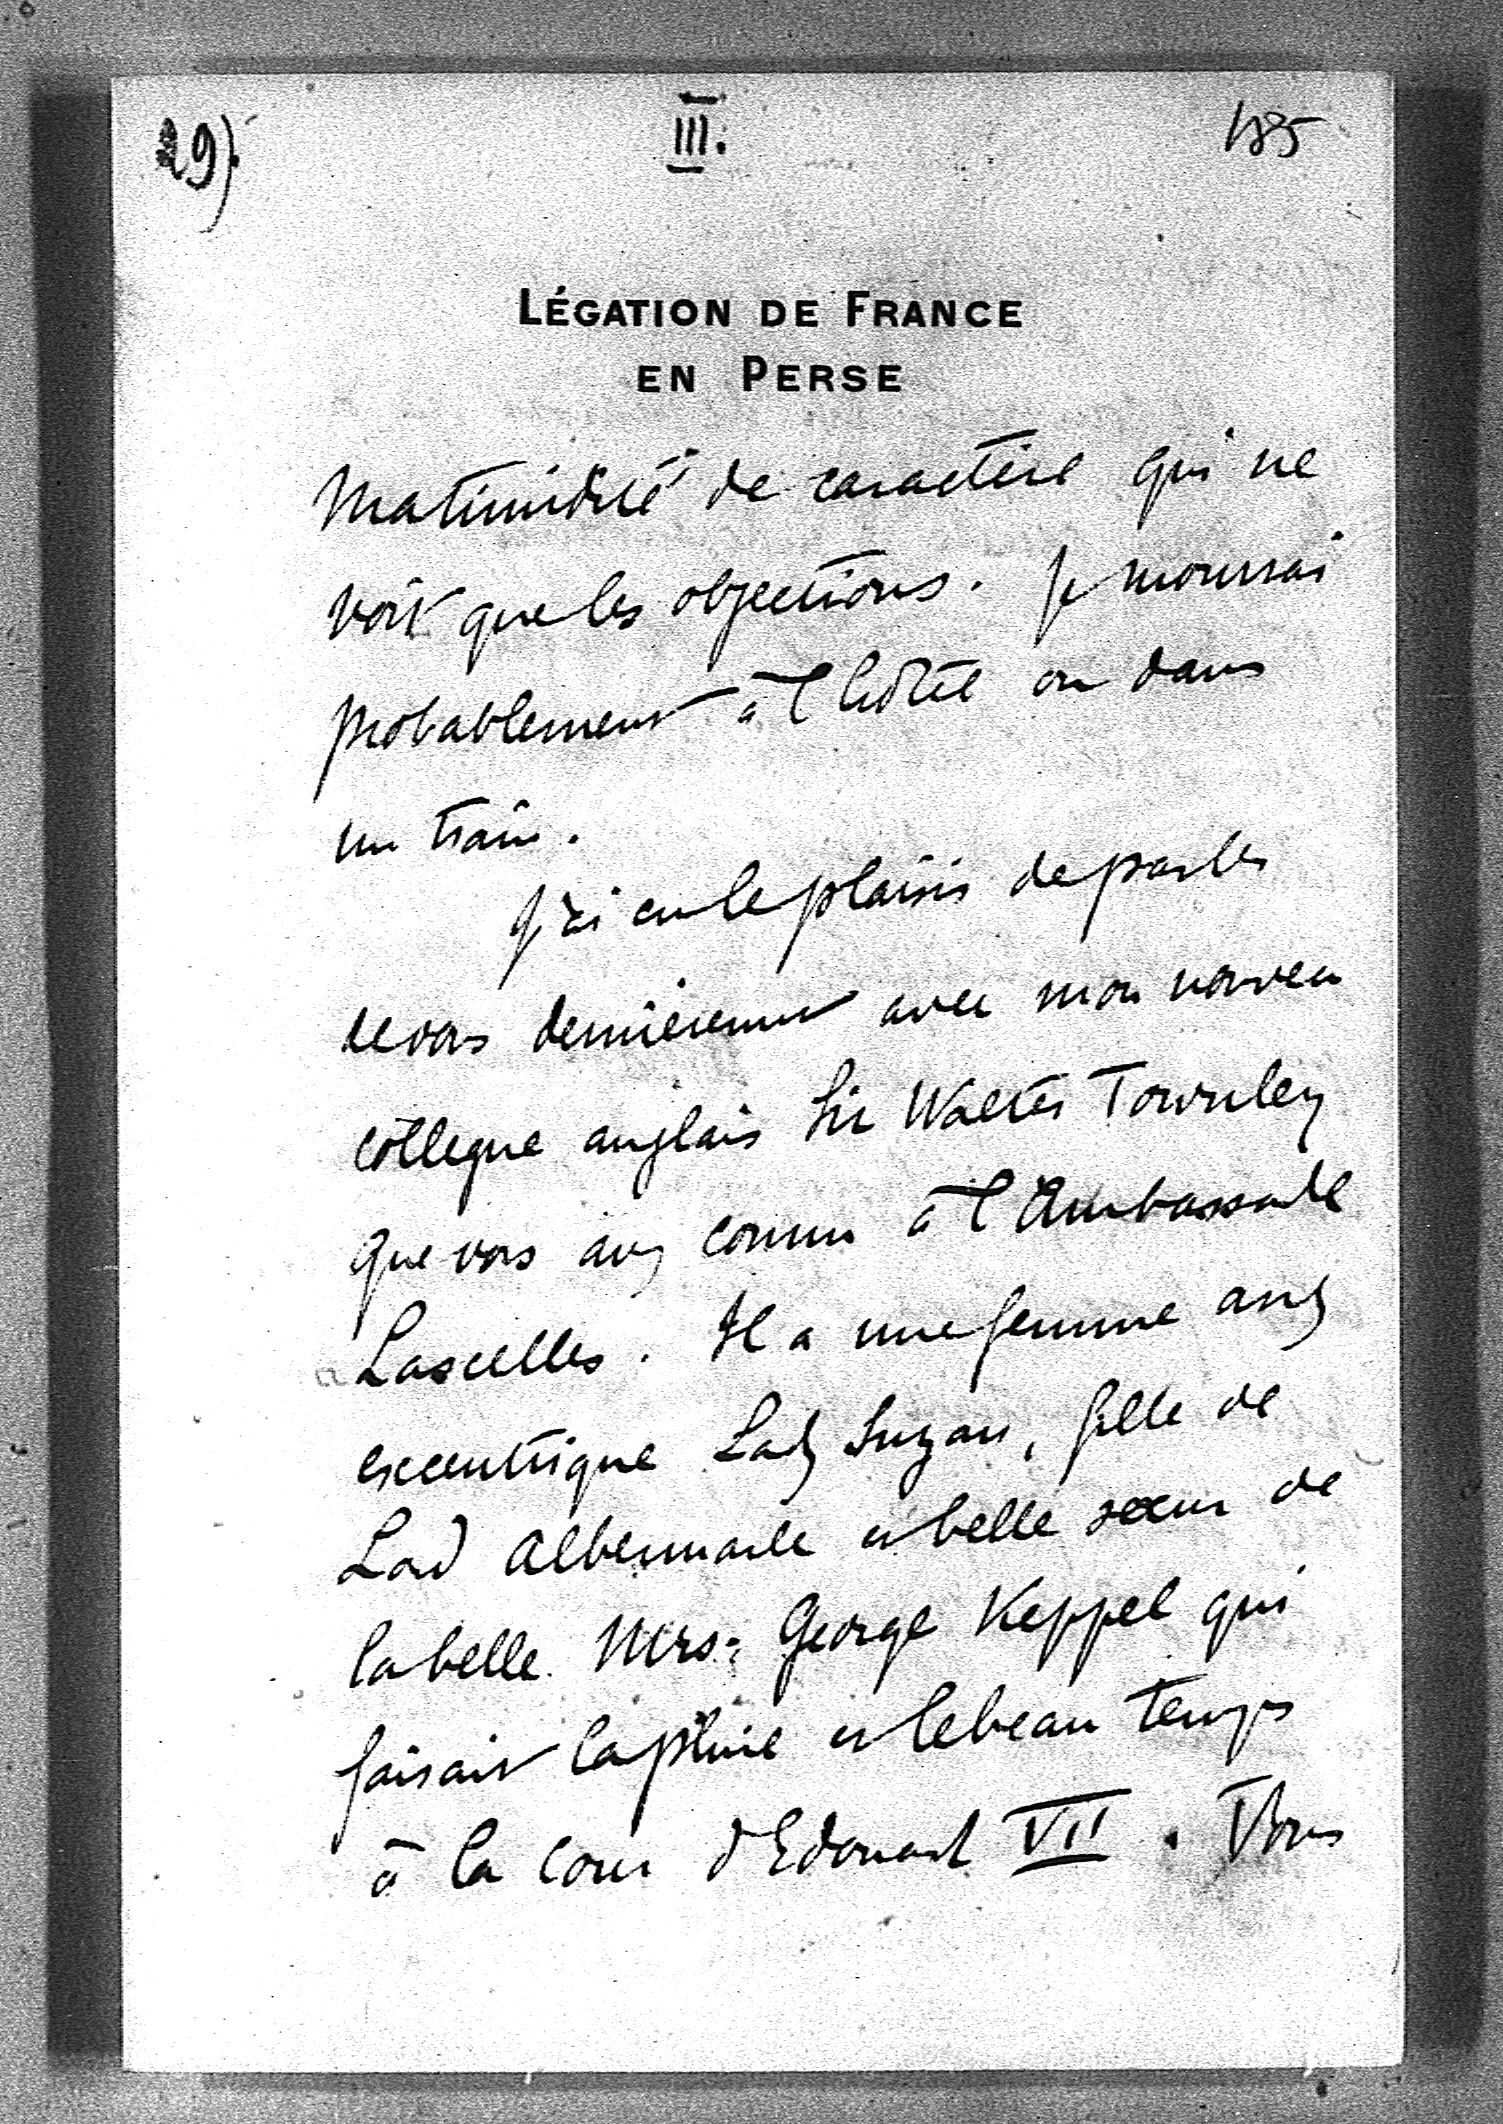 29)
III.
185
LÉGATION DE FRANCE
EN PERSE
Ma timidité de caractère qui ne
voit que les objections. Je mourrai
probablement à l'hôtel ou dans
un train.
J'ai eu le plaisir de parler
de vous dernièrement avec mon nouveau
collegue anglais Sir Walter Townley
que vous avez connu à l'Ambassade
Lascelles. Il a une femme assez
excentrique Lady Suzan, fille de
Lord Albermarle et belle soeur de
la belle Mrs. George Keppel qui
faisait la pluie et le beau temps
à la cour d'Edouard VII. Vous